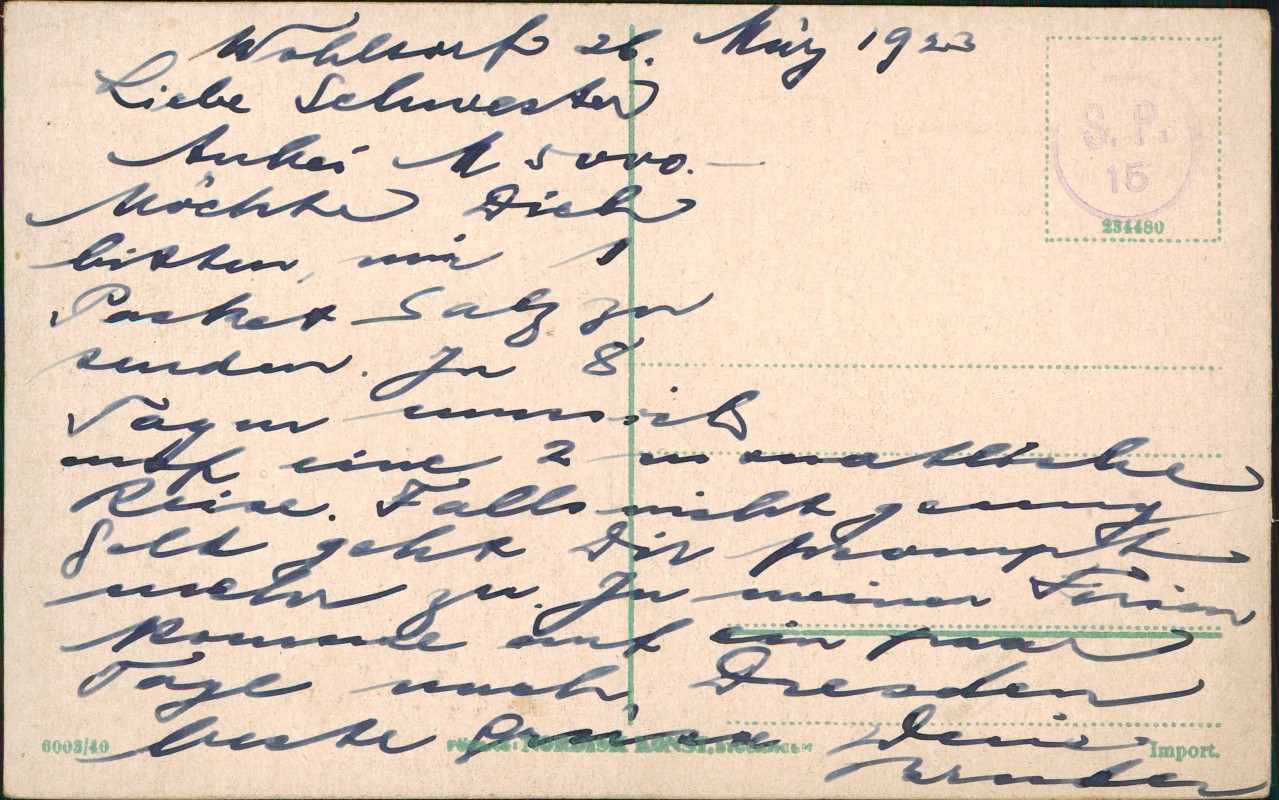 Wohldorf 26. März 1923
Liebe Schwester
Anbei M 5000.—
Möchte Dich
bitten, mir 1
Packet Salz zu
senden. In 8
Tagen muss ich
auf eine 2 monatliche
Reise. Falls nicht genug
Geld geht Dir prompt
mehr zu. In meinen Ferien
komme auf ein paar
Tage nach Dresden
beste Grüsse Dein
Bruder
S. P.
15
234480
6003/40
NORDISK KONST, STOCKHOLM
Import.